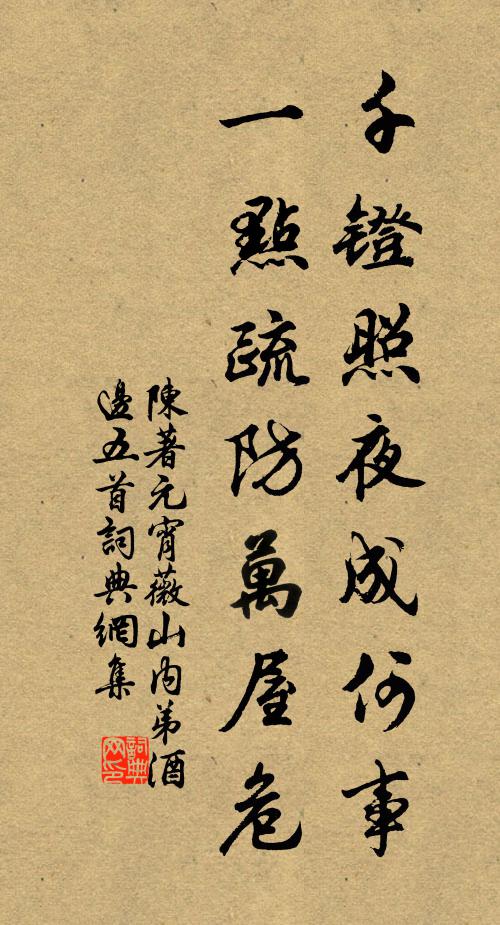 千鐙照夜成何事
一點疏防萬屋危
陳著元宵薇山內弟酒
邊五首詞典網集
詞典
网印